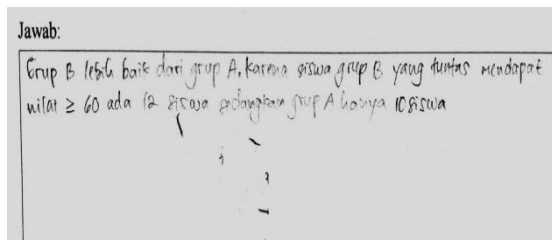 Jawab:
Grup B lebih baik dari grup A. karena siswa grup B yang tuntas mendapat
nilai ≥ 60 ada 12 siswa sedangkan grup A hanya 10 siswa